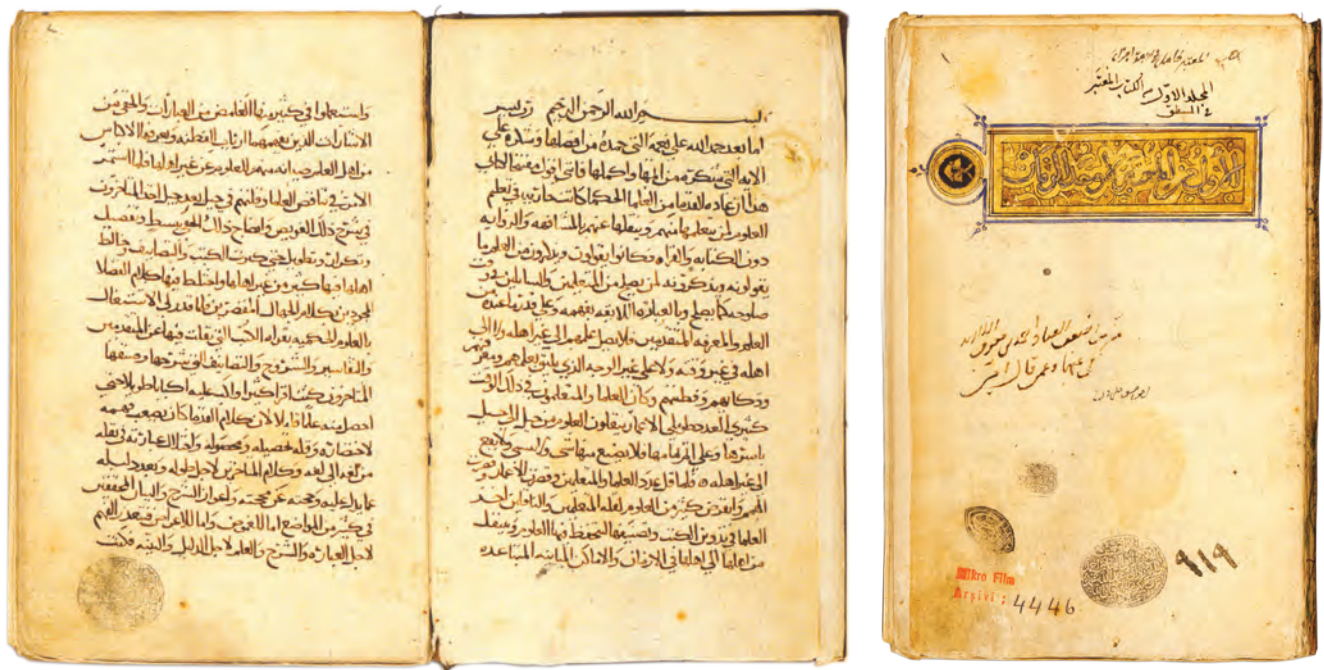 المجلد الاول من الكتاب المعتبر
في المنطق
الاول من المعتبر لاوحد الزمان
٩١٩
Mikro Film
Arşivi : 4446
بسم الله الرحمن الرحيم رب يسر
اما بعد حمد الله على نعمه التي حمده من افضلها وشكره على
الائه التي شكره من اتمها واكملها فانني اقول مفتتحا لكتابي
هذا ان عادة القدما من العلما الحكما كانت جاريه في تعليم
العلوم لمن يتعلمها منهم وينقلها عنهم بالمشافهه والروايه
دون الكتابه والقراه فكانوا يقولون ويذكرون من العلم ما
يقولونه ويذكرونه لمن يصلح من المتعلمين والسايلين في وقت
صلوحه كما يصلح وبالعباره اللايقه بفهمه وعلى قدر ما عنده من
العلم والمعرفه المتقدمين فلا يصل علمهم الى غير اهله ولا الى
اهله في غير وقته ولا على غير الوجه الذي يليق بعلمهم ومعرفتهم
وذكايهم وفطنتهم وكان العلما والمتعلمون في ذلك الوقت
كثيري العدد طويلي الاعمار ينقلون العلوم من جيل الى جيل
باسرها وعلى اتمامها فلا يضيع منها شي ولا ينسى ولا يقع
الى غير اهله فلما قل عدد العلما والمتعلمين وقصرت الاعمار وقصرت
الهمم وانقرض كثير من العلوم لقله المتعلمين والناقلين اخذ
العلما في تدوين الكتب وتصنيفها لتحفظ فيها العلوم وتنتقل
من اهلها الى اهلها في الازمان والاماكن المتباينه المتباعده
واستعملوا في كثير منها الغامض من العبارات والخفي من
الاشارات الذين يفهمهما ارباب الفطنه ويعرفه الاكياس
من اهل العلم صيانه منهم للعلوم عن غير اهلها فلما استمر
الامر في تناقص العلما وقلتهم في جيل بعد جيل اخذ المتاخرون
في شرح ذلك العويص وايضاح ذلك الخفي ببسط وتفصيل
وتكرار وتطويل حتى كثرت الكتب والتصانيف وخالط
اهلها فيها كثير من غير اهلها واختلط فيها كلام الفضلا
المجودين بكلام الجهال المقصرين فلما قدر لي الاشتغال
بالعلوم الحكميه بقراه الكتب التي نقلت فيها عن المتقدمين
والتفاسير والشروح والتصانيف التي شرحها وصنفها
المتاخرون كنت اقرا كثيرا واكب عليه اكبابا طويلا حتى
احصل منه علما قليلا لان كلام القدما كان يصعب فهمه
لاختصاره وقله تحصيله ومحصوله واختلال عبارته في نقله
من لغه الى لغه وكلام المتاخرين لاجل طوله وبعد دليله
عما يدل عليه وحجته عن محجته ولعوز الشرح والبيان المحققين
في كثير من المواضع اما للغموض واما للاعراض فيتعذر الفهم
لاجل العباره والشرح والعلم لاجل الدليل والبينه فكنت